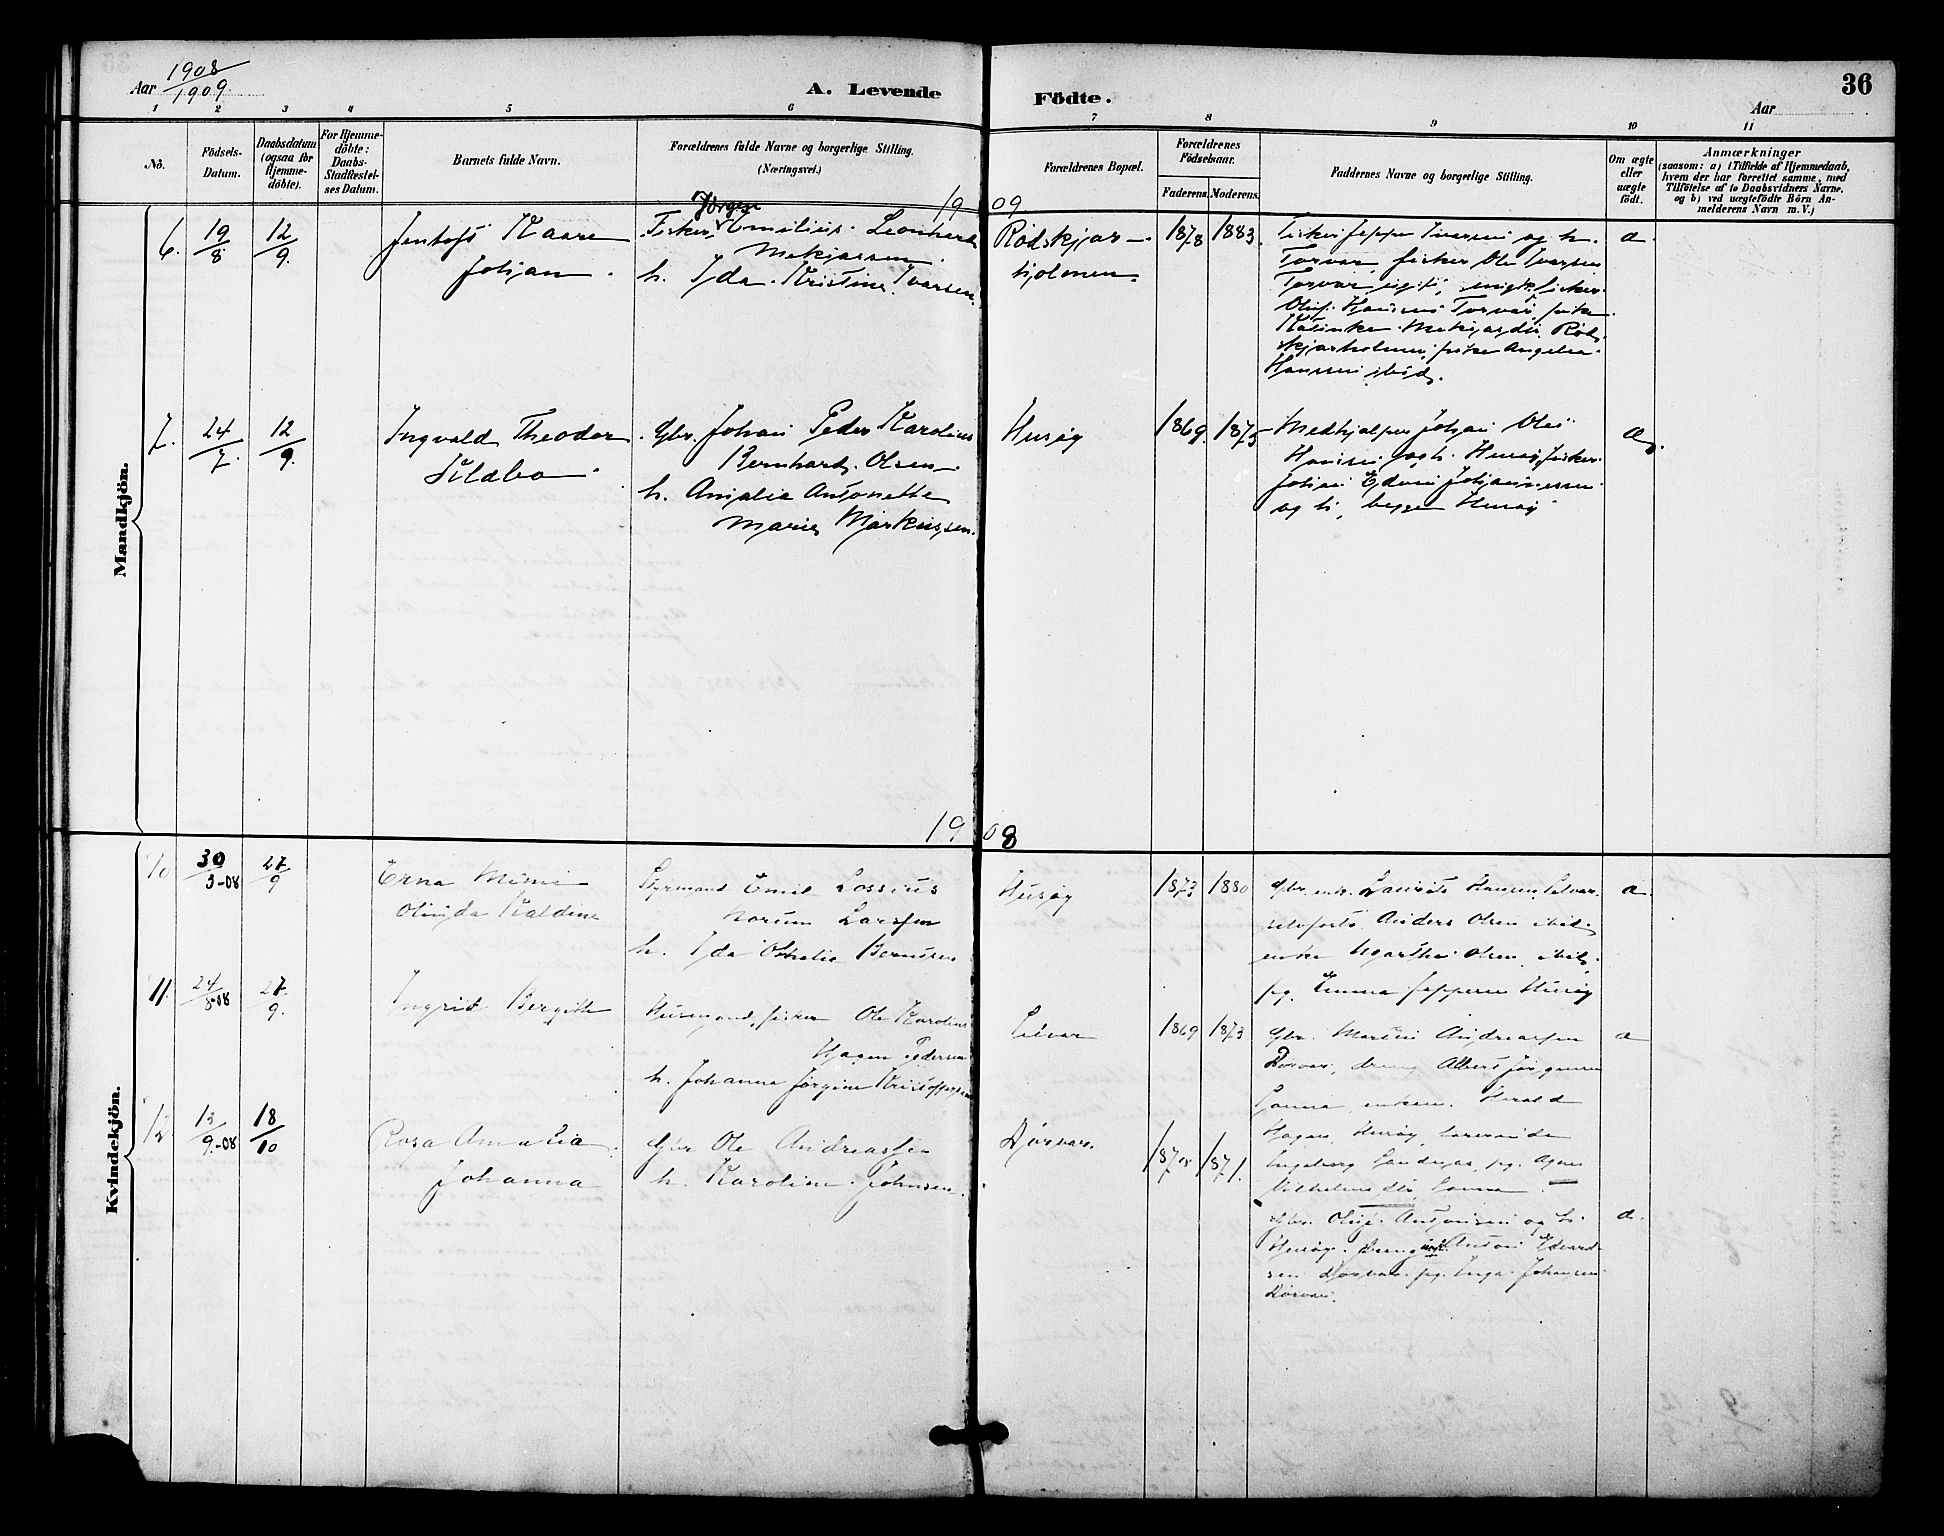 36
Aar 1908
1909.
A. Levende
Födte.
Aar
1 2 3 4 5 6 7 8 9 10 11
Nö.
Födsels-
Datum.
Daabsdatum
(ogsaa för
Hjemme-
döbte).
For Hjemme-
döbte:
Daabs-
Stadfæstel-
ses Datum.
Barnets fulde Navn.
Forældrenes fulde Navne og borgerlige Stilling.
(Næringsvei.)
Forældrenes Bopæl.
Forældrenes
Födselsaar.
Faderens. Moderens.
Faddernes Navne og borgerlige Stilling.
Om ægte
eller
uægte
födt.
Anmærkninger
(saasom: a) i Tilfælde af Hjemmedaab,
hvem der har forrettet samme, med
Tilföielse af to Daabsvidners Navne.
og b) ved uægtefödte Börn An-
melderens Navn m. V.)
1909
Mandkjön.
6. 19/8 12/9.
Jentoft Kaare
Johan.
Jørgen
Fisker, Emilius Leonhard
Mekjassen.
h. Ida Kristine Ivarsen.
Rødskjær-
holmen.
1878 1883.
Fisker Jeppe Iversen og h.
Torvær, fisker Ole Iversen
Torvær, ungk. fisker
Oluf Hansen Torvær, pike
Katinka Mekjasdtr. Rød-
skjærholmen, pike Angelea
Hansen ibid.
a.
7. 24/7. 12/9.
Ingvald Theodor
Klæbo.
Gbr. Johan Peder Karolius
Bernhard Olsen
h. Amalie Antonette
Marie Markussen.
Husøy
1869. 1875
Medhjelper Johan Olai
Hansen og h. Husøy, fisker
Johan Edvin Johannessen
og h., begge Husøy
a.
1908
Kvindekjön.
10 30/3-08 27/9
Erna Mimi
Olinda Kaldine
Styrmand Emil Lossius
Norum Larssen
h. Ida Othelie Berntsen
Husøy
1873 1880
Gbr. enk. Laurits Hansen, Selvær
Anders Olsen ibid.
enke Martha Olsen, ibid.
pg. Emma Jeppesen Husøy
a.
11. 24/8-08 27/9.
Ingrid Bergitte
Husmand, fisker Ole Karolius
Hagen Pedersen
h. Johanna Jørgine Kristoffersen
Selvær
1869 1873
Gbr. Martin Andreassen
Dørvær, dreng Albert Jørgensen
Sanna, enkem. Harald
Hagen, Husøy, lærerinde
Ingeborg Sandnes, pg. Agnes
Vilhelmsdtr. Sanna.
a
12 13/9-08 18/10
Rosa Amalia
Johanna
Gbr. Ole Andreassen
h. Karoline Johnsen.
Dørvær.
1875 1871.
Gbr. Oluf Antonsen og h.
Husøy. Dreng Anton Edvard-
sen Dørvær. pg. Inga Johansen
Dørvær.
a.